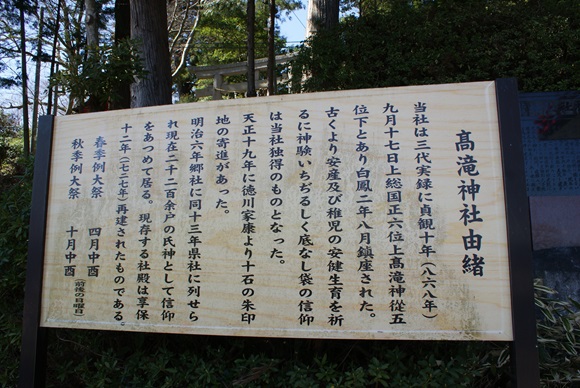 高滝神社由緒
当社は三代実録に貞観十年(八六八年)
九月十七日上総国正六位上高滝神従五
位下とあり白鳳二年八月鎮座された。
古くより安産及び稚児の安健生育を祈
るに神験いちぢるしく底なし袋の信仰
は当社独得のものとなった。
天正十九年に徳川家康より十石の朱印
地の寄進があった。
明治六年郷社に同十三年県社に列せら
れ現在二千二百余戸の氏神として信仰
をあつめて居る。現存する社殿は享保
十二年(一七二七年)再建されたものである。
春季例大祭 四月中酉
秋季例大祭 十月中酉(前後の日曜日)